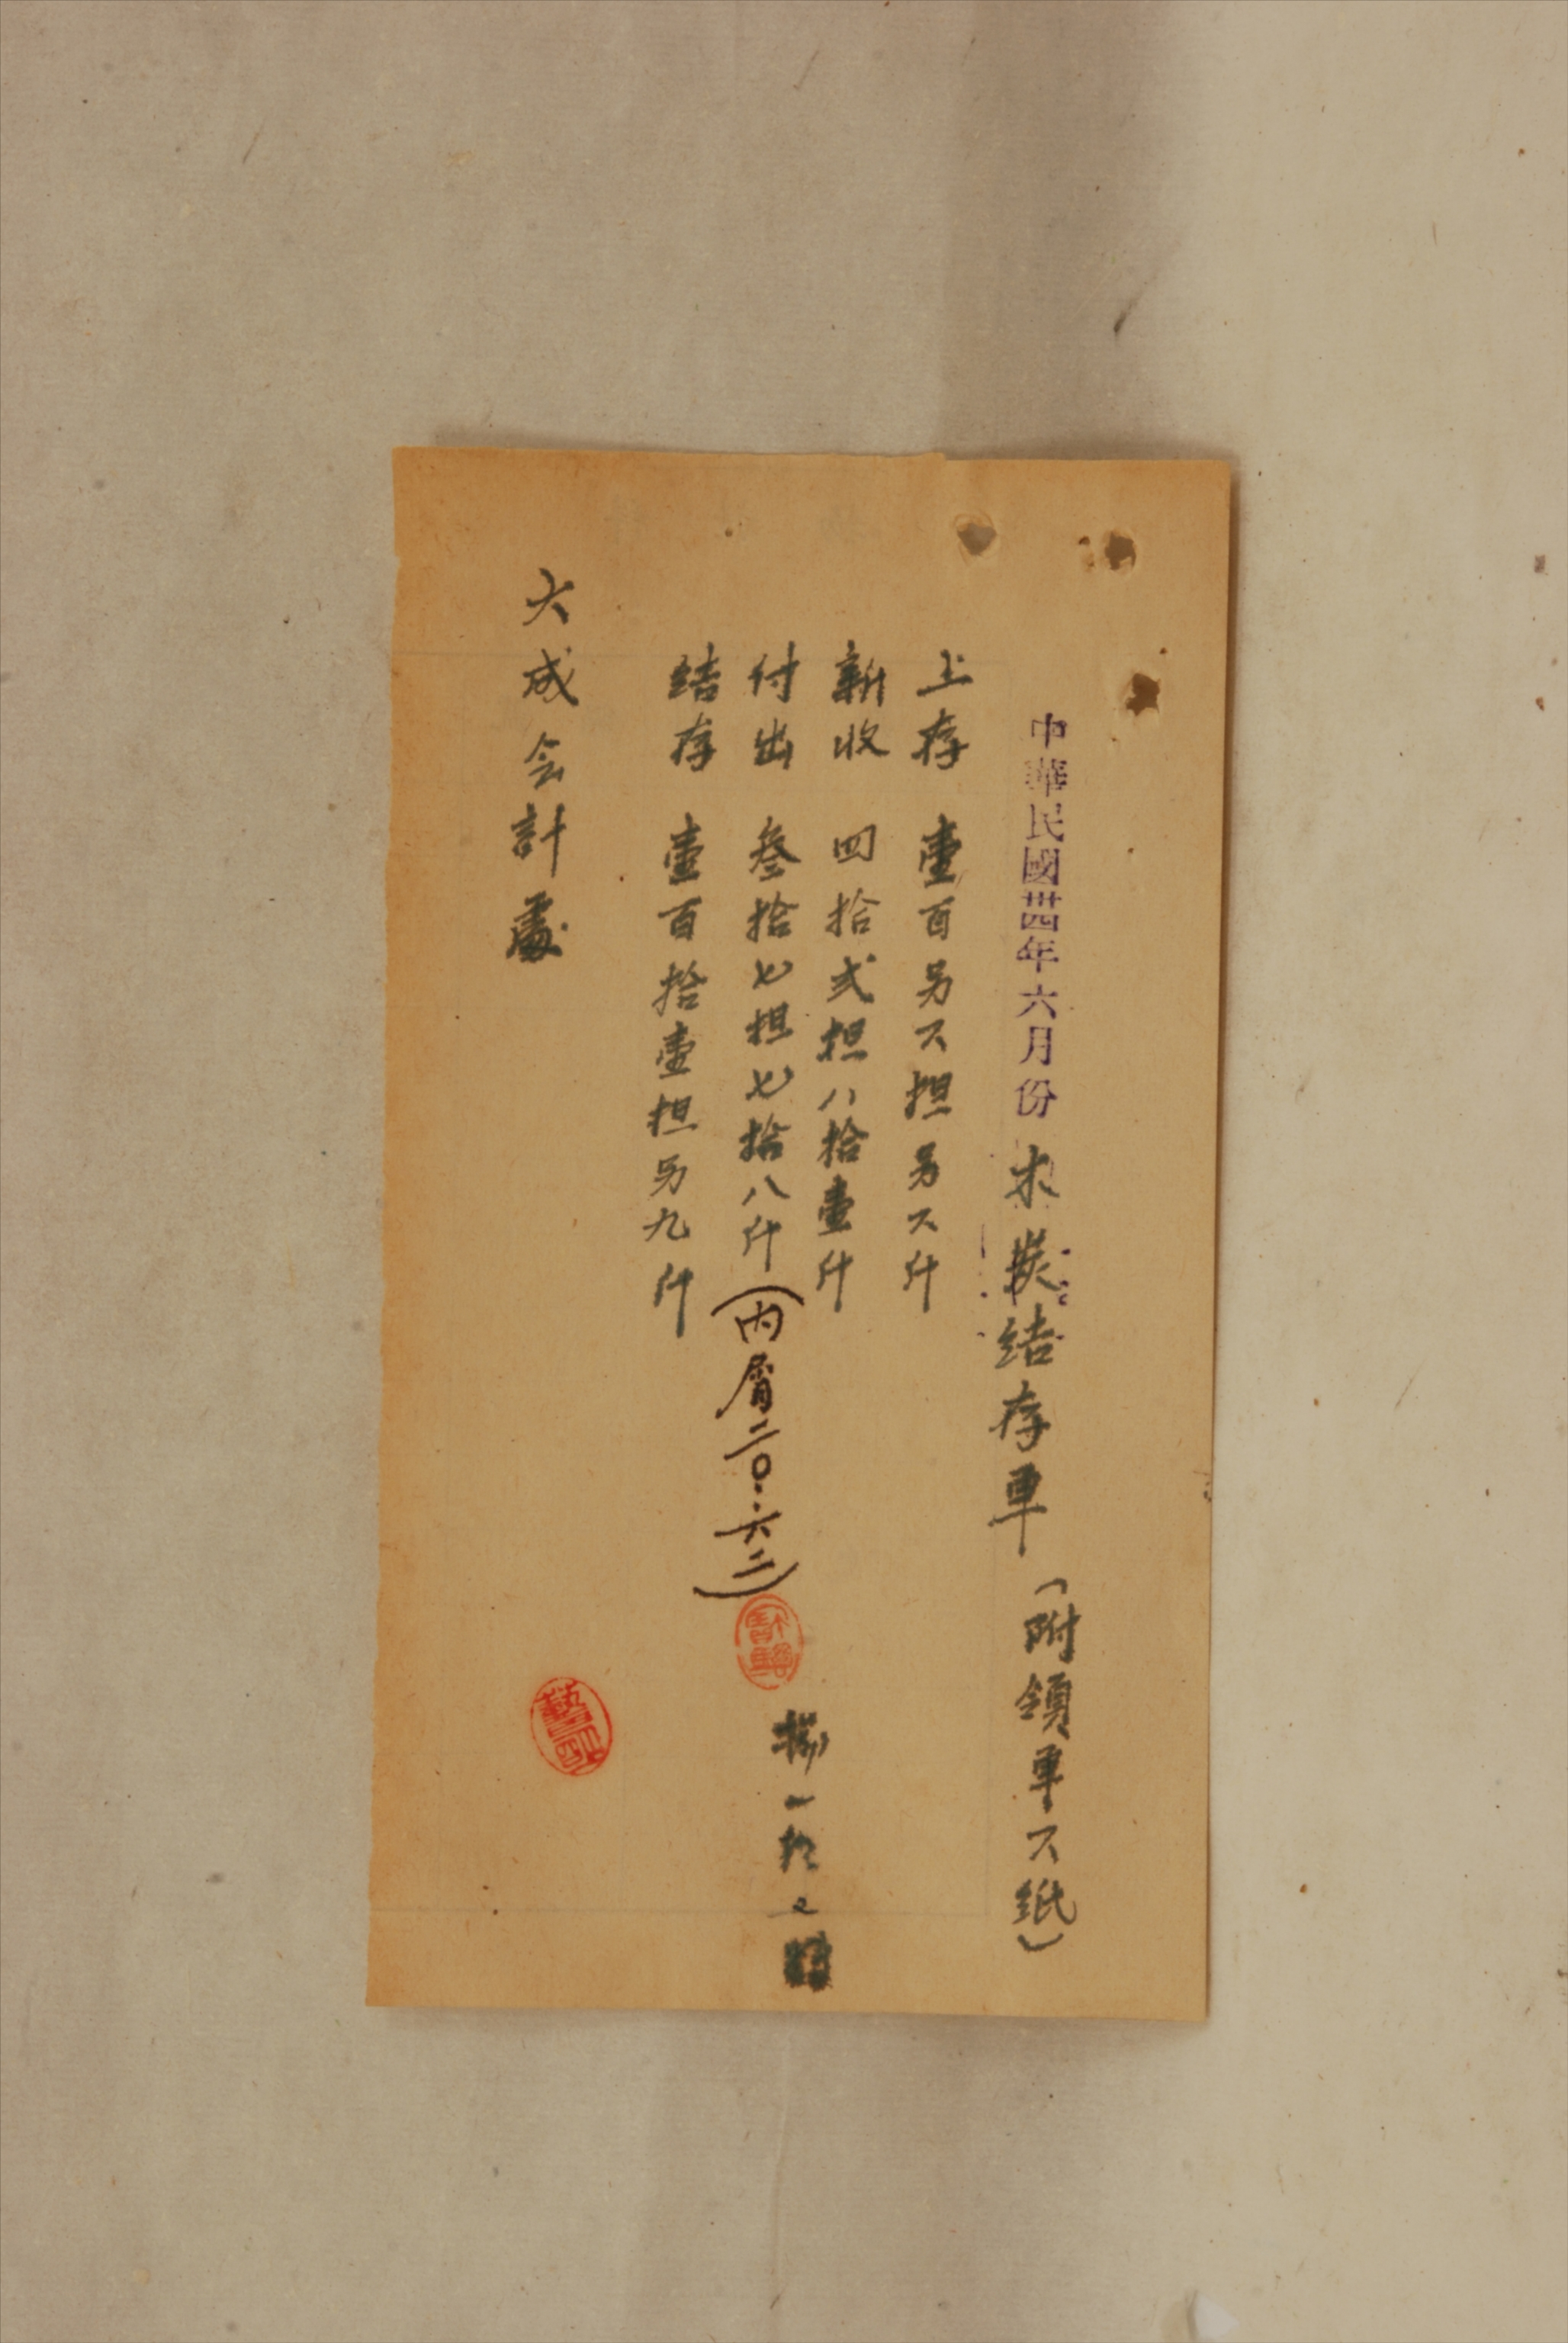 中華民國卅四年六月份 木炭结存单（附領单六纸）
上存 壹百另六担另六斤
新收 四拾弍担八拾壹斤
付出 叁拾七担七拾八斤（内屑二〇.六二）
结存 壹百拾壹担另九斤
大成会計處